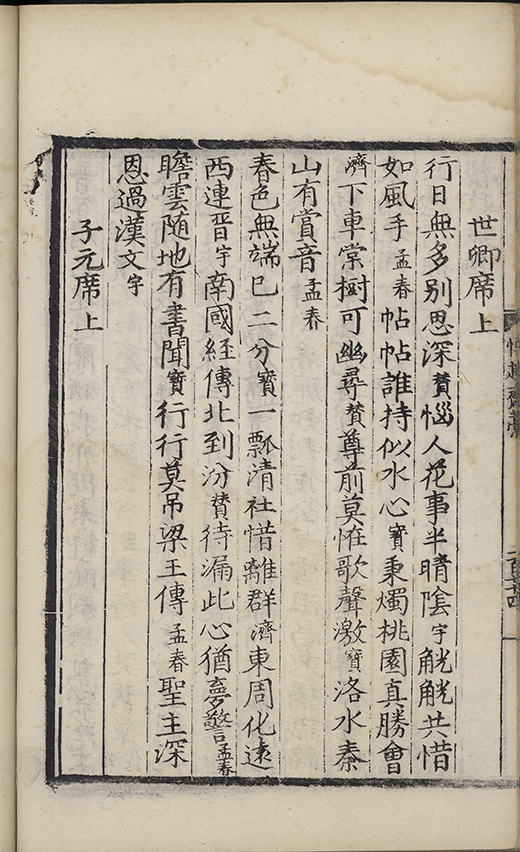 世卿席上
行日無多別思深賛惱人花事半晴陰宇觥觥共惜
如風手孟春帖帖誰持似水心寳秉燭桃園真勝會
濟下車棠樹可幽尋賛尊前莫恠歌聲激寳洛水秦
山有賞音孟春
春色無端巳二分寳一瓢清社惜離群濟東周化遠
西連晋宇南國經傳北到汾賛待漏此心猶夢警孟春
瞻雲随地有書聞寳行行莫吊梁王傳孟春聖主深
恩過漢文宇
子元席上